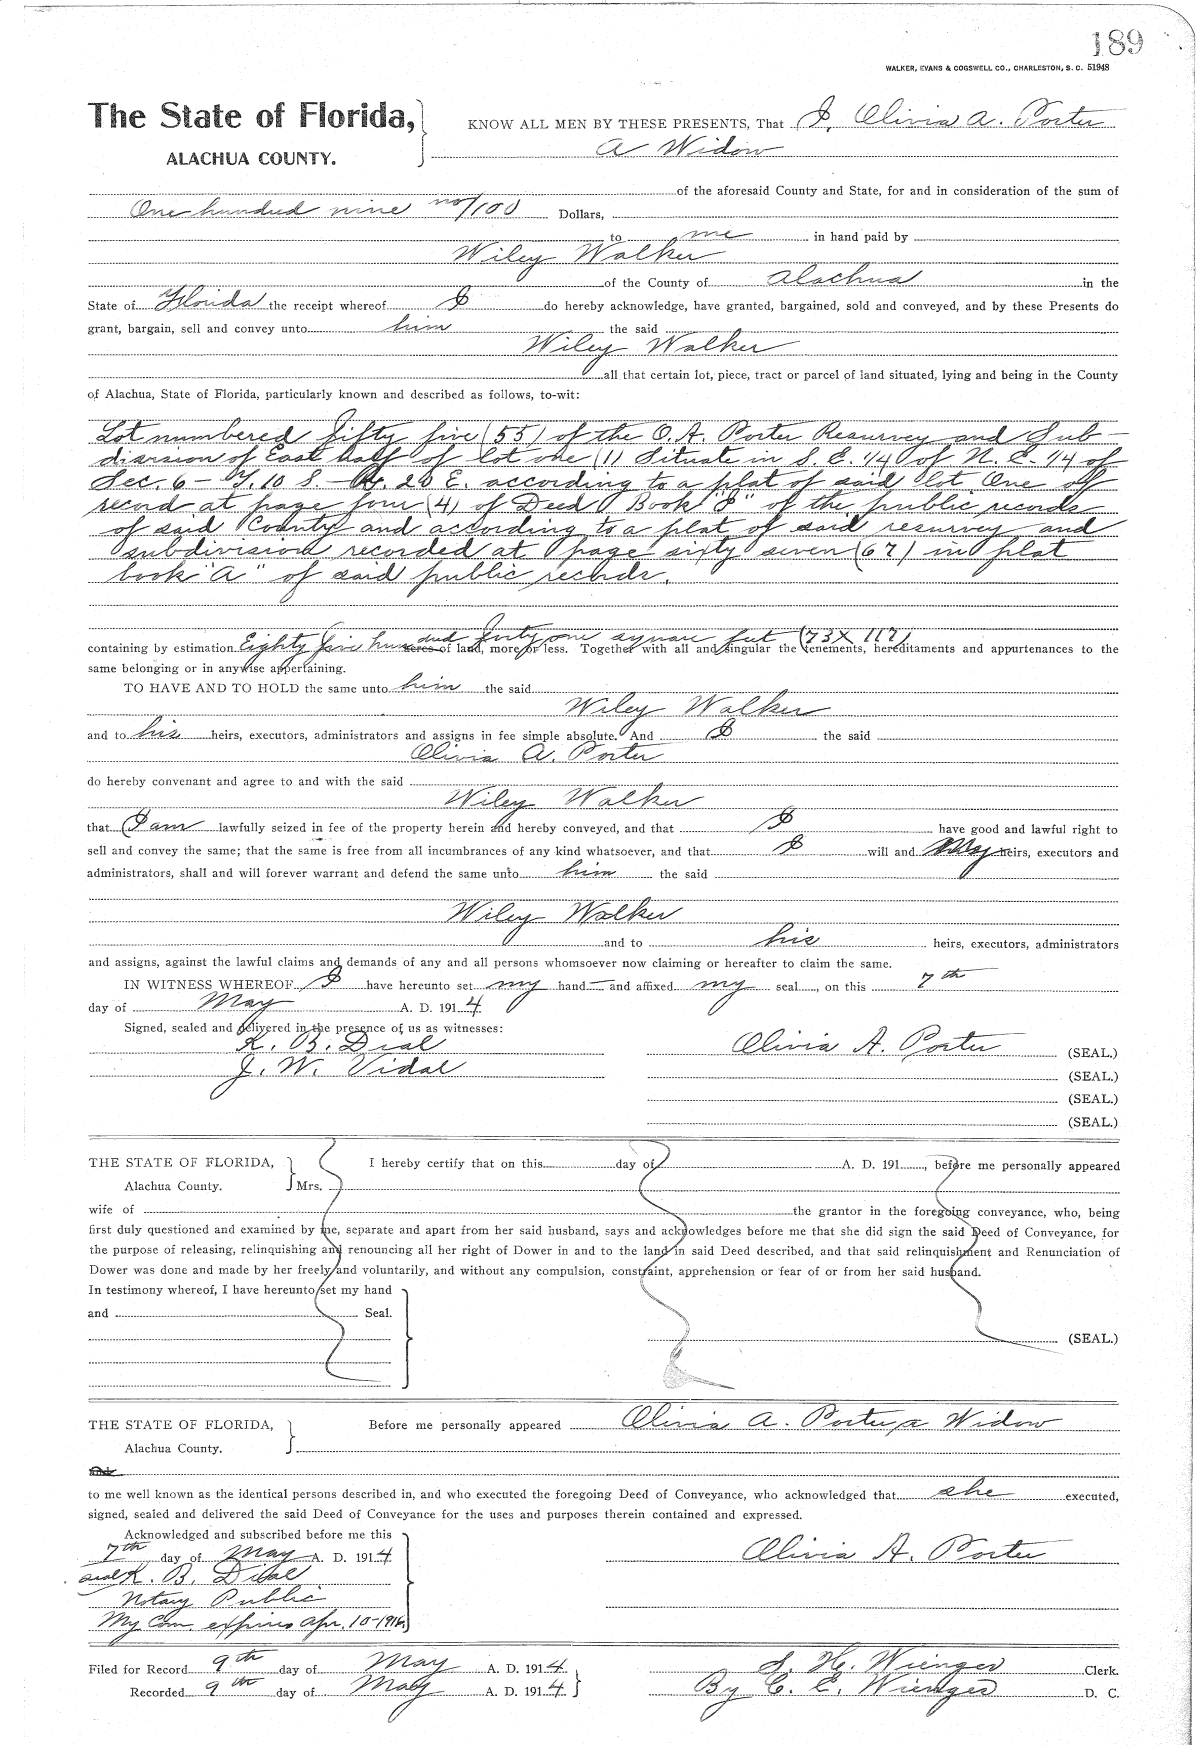 189
WALKER, EVANS & COGSWELL CO., CHARLESTON, S. C. 51948
The State of Florida,
KNOW ALL MEN BY THESE PRESENTS, That I, Olivia A. Porter
ALACHUA COUNTY.
A Widow
of the aforesaid County and State, for and in consideration of the sum of
One hundred nine no/100 Dollars,
to me in hand paid by
Wiley Walker
of the County of Alachua in the
State of Florida the receipt whereof I do hereby acknowledge, have granted, bargained, sold and conveyed, and by these Presents do
grant, bargain, sell and convey unto him the said
Wiley Walker
all that certain lot, piece, tract or parcel of land situated, lying and being in the County
of Alachua, State of Florida, particularly known and described as follows, to-wit:
Lot numbered fifty five (55) of the O. A. Porter Resurvey and Sub-
division of East half of lot one (1) Situate in S. E. 1/4 of N. E. 1/4 of
Sec. 6 - T. 10 S - R. 20 E. according to a plat of said lot One of
record at page four (4) of Deed Book "I" of the public records
of said County and according to a plat of said resurvey and
subdivision recorded at page sixty seven (67) in plat
book "A" of said public records.
containing by estimation Eighty five hundred forty one square feet (73 X 117) acres of land, more or less. Together with all and singular the tenements, hereditaments and appurtenances to the
same belonging or in anywise appertaining.
TO HAVE AND TO HOLD the same unto him the said
Wiley Walker
and to his heirs, executors, administrators and assigns in fee simple absolute. And I the said
Olivia A. Porter
do hereby convenant and agree to and with the said
Wiley Walker
that I am lawfully seized in fee of the property herein and hereby conveyed, and that I have good and lawful right to
sell and convey the same; that the same is free from all incumbrances of any kind whatsoever, and that I will and My heirs, executors and
administrators, shall and will forever warrant and defend the same unto him the said
Wiley Walker
and to his heirs, executors, administrators
and assigns, against the lawful claims and demands of any and all persons whomsoever now claiming or hereafter to claim the same.
IN WITNESS WHEREOF I have hereunto set my hand and affixed my seal, on this 7th
day of May A. D. 1914.
Signed, sealed and delivered in the presence of us as witnesses:
K. B. Dial
Olivia A. Porter (SEAL.)
J. W. Vidal
(SEAL.)
(SEAL.)
(SEAL.)
THE STATE OF FLORIDA, I hereby certify that on this day of A. D. 191, before me personally appeared
Alachua County. Mrs.
wife of the grantor in the foregoing conveyance, who, being
first duly questioned and examined by me, separate and apart from her said husband, says and acknowledges before me that she did sign the said Deed of Conveyance, for
the purpose of releasing, relinquishing and renouncing all her right of Dower in and to the land in said Deed described, and that said relinquishment and Renunciation of
Dower was done and made by her freely and voluntarily, and without any compulsion, constraint, apprehension or fear of or from her said husband.
In testimony whereof, I have hereunto set my hand
and Seal.
(SEAL.)
THE STATE OF FLORIDA, Before me personally appeared Olivia A. Porter, a Widow
Alachua County.
and
to me well known as the identical persons described in, and who executed the foregoing Deed of Conveyance, who acknowledged that she executed,
signed, sealed and delivered the said Deed of Conveyance for the uses and purposes therein contained and expressed.
Acknowledged and subscribed before me this
7th day of May A. D. 1914.
Olivia A. Porter
seal K. B. Dial
Notary Public
My Com. expires Apr. 10-1916.
Filed for Record 9th day of May A. D. 1914. S. H. Wienges Clerk.
Recorded 9th day of May A. D. 1914. By C. E. Wienges D. C.